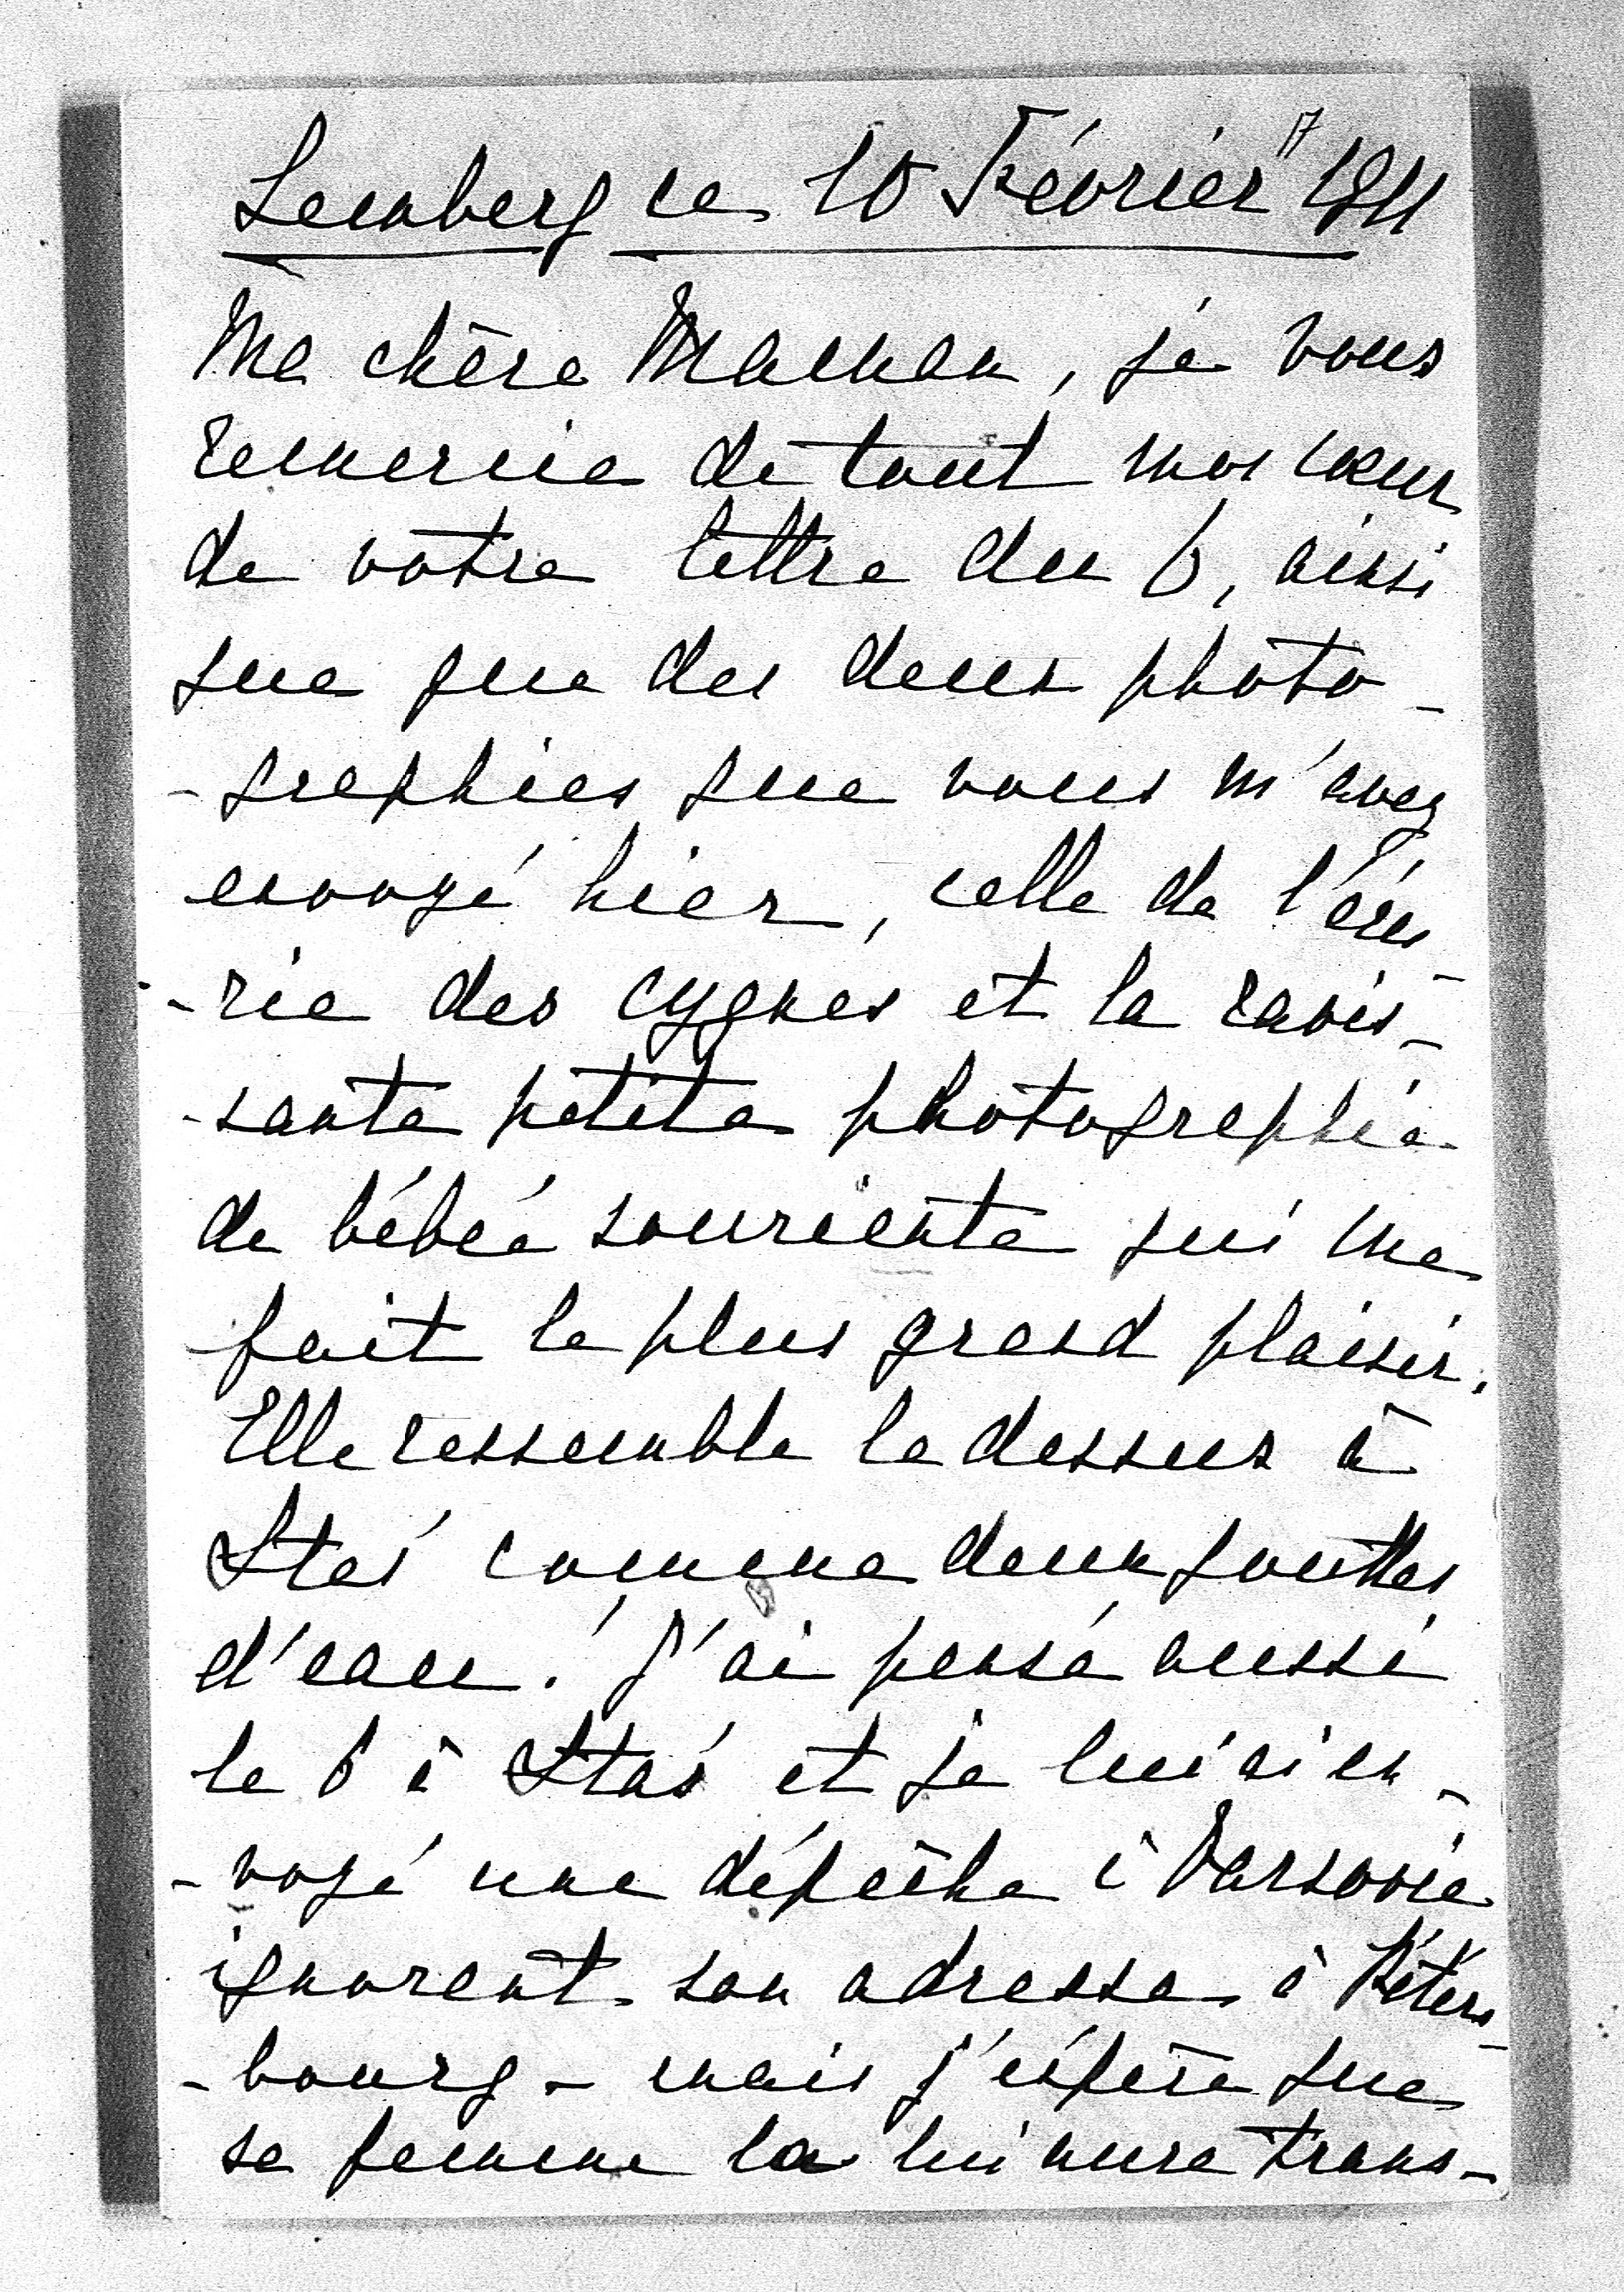 Lemberg ce 10 Février 1911
17
Ma chère Maman, je vous
remercie de tout mon cœur
de votre lettre du 6, ainsi
que que des deux photo-
-graphies que vous m'avez
envoyé hier, celle de l'écu-
-rie des cygnes et la ravis-
-sante petite photographie
de bébée souriante qui me
fait le plus grand plaisir.
Elle ressemble la dessus à
Staś comme deux gouttes
d'eau! J'ai pensé aussi
le 6 à Staś et je lui ai en-
-voyé une dépêche à Varsovie
ignorant son adresse à Péters-
-bourg - mais j'espère que
sa femme la lui aura trans-